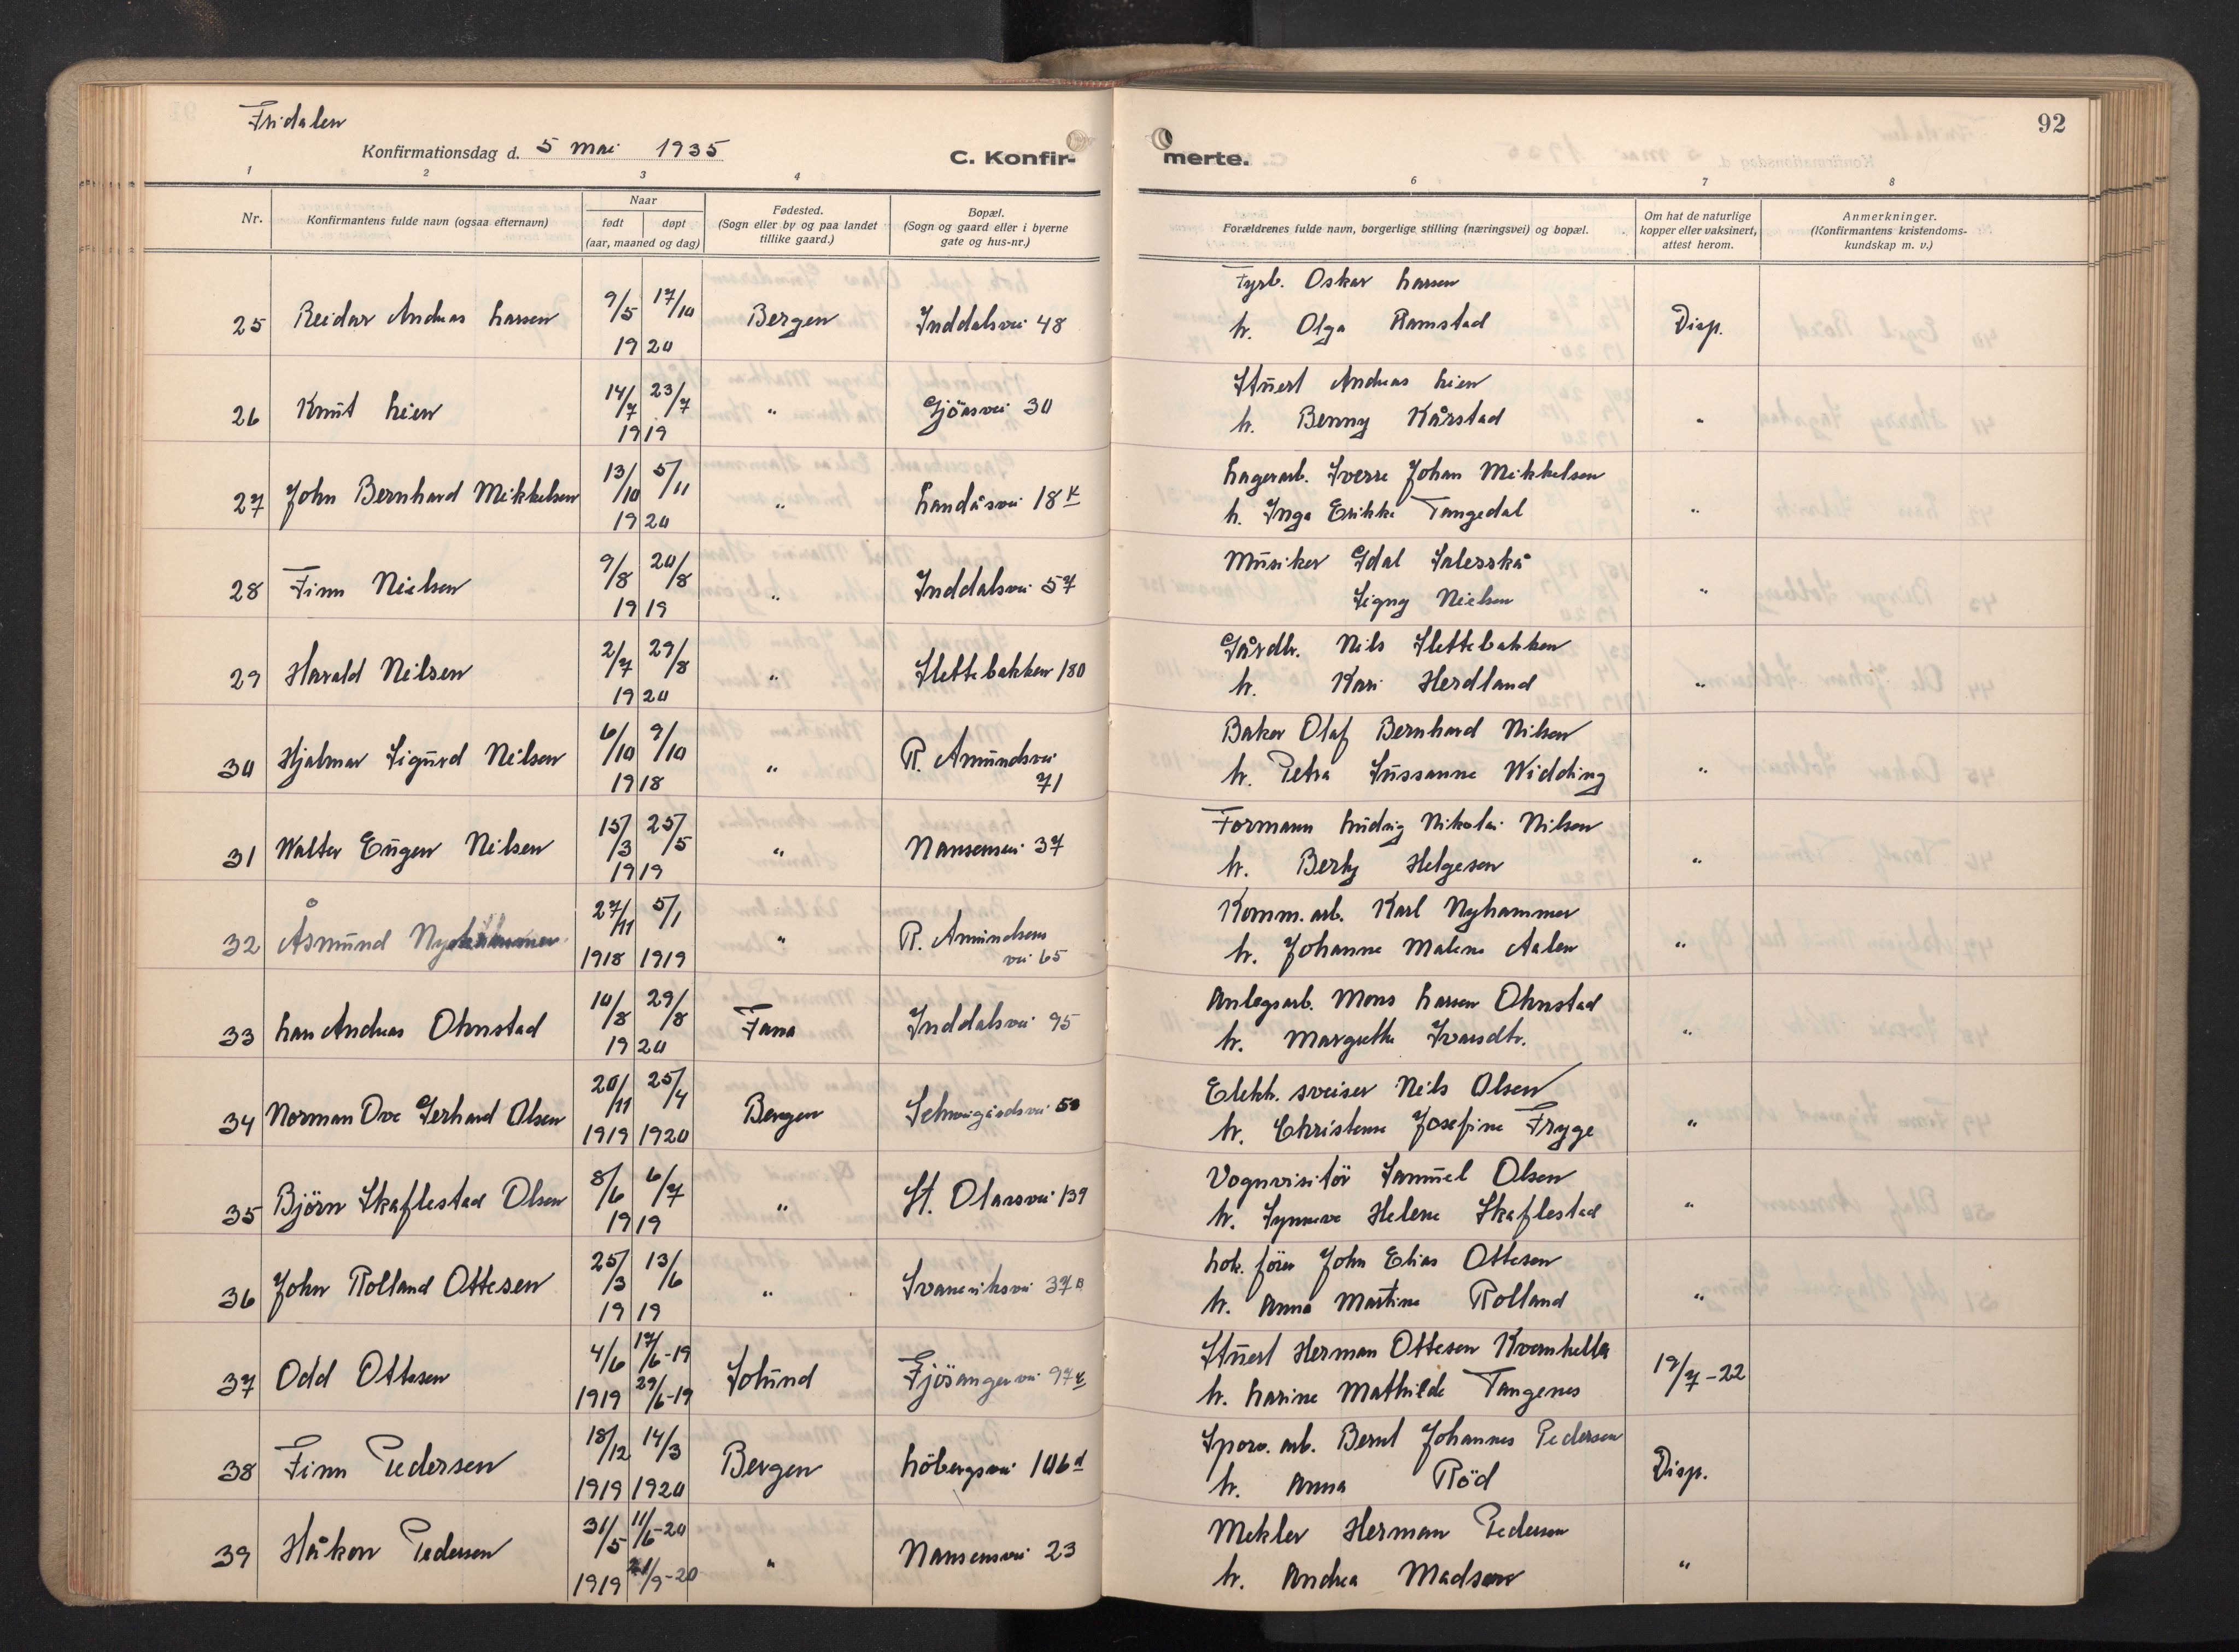 92
Fridalen
Konfirmationsdag d. 5 mai 1935
C. Konfir-
merte.
1 2 3 4 6 7 8
Nr.
Konfirmantens fulde navn (ogsaa efternavn)
Naar
født døpt
(aar, maaned og dag)
Fødested.
(Sogn eller by og paa landet
tillike gaard.)
Bopæl.
(Sogn og gaard eller i byerne
gate og hus-nr.)
Forældrenes fulde navn, borgerlige stilling (næringsvei) og bopæl.
Om hat de naturlige
kopper eller vaksinert,
attest herom.
Anmerkninger.
(Konfirmantens kristendoms-
kundskap m. v.)
Fyrb. Oskar Larsen
25 Reidar Andreas Larsen 9/5 17/10 Bergen Inddalsvei 48 h. Olga Ramstad Disp.
19 20
Stuert Andreas Lien
26 Knut Lien 14/7 23/7 " Gjøasvei 30 h. Benny Kårstad "
19 19
Lagerarb. Sverre Johan Mikkelsen
27 John Bernhard Mikkelsen 13/10 5/11 " Landåsvei 18 h. Inga Erikke Tangedal "
19 20
Musiker Idal
28 Finn Nielsen 9/8 20/8 " Inddalsvei 57 Signy Nielsen "
19 19
Gårdbr. Nils Slettebakken
29 Harald Nilsen 2/7 29/8 " Slettebakken 180 h. Kari Herdland "
19 20
Baker Olaf Bernhard Nilsen
30 Hjalmar Sigurd Nilsen 6/10 9/10 " R. Amundsvei h. Petra Sussanne Widding "
19 18 71
Formann Ludvig Nikolai Nilsen
31 Walter Eugen Nilsen 15/3 25/5 " Nansensvei 37 h. Berty Helgesen "
19 19
Komm. arb. Karl Nyhammer
32 Åsmund Nyhammer 27/11 5/1 " R. Amundsens h. Johanne Malene Aalen "
1918 1919 vei 65
Anlegsarb. Mons Larsen Ohnstad
33 Lars Andreas Ohnstad 10/8 29/8 Fana Inddalsvei 95 h. Margrethe Ivarsdtr. "
19 20
Elektr. sveiser Nils Olsen
34 Norman Ove Gerhard Olsen 20/11 25/4 Bergen Schweigårdsvei 50 h. Christense Josefine Fryge "
1919 1920
Vognvisitør Samuel Olsen
35 Björn Skaflestad Olsen 8/6 6/7 " St. Olavsvei 139 h. Synneve Helene Skaflestad "
19 19
Lok. förer John Elias Ottesen
36 John Rolland Ottesen 25/3 13/6 " Ivareriksvei 37 B h. Anna Martine Rolland "
19 19
Stuert Herman Ottesen Kvernhella
37 Odd Ottesen 4/6 17/6-19 Solund Fjösangervei 97 h. Larine Mathilde Tangenes 19/7-22
1919 29/6-19
Sporv. arb. Bernt Johannes Pedersen
38 Finn Pedersen 18/12 14/3 Bergen Löbergsvei 106 d h. Anna Röd Disp.
1919 1920
Mekler Herman Pedersen
39 Håkon Pedersen 31/5 11/6-20 " Nansensvei 23 h. Andrea Madsen "
1919 21/9-20